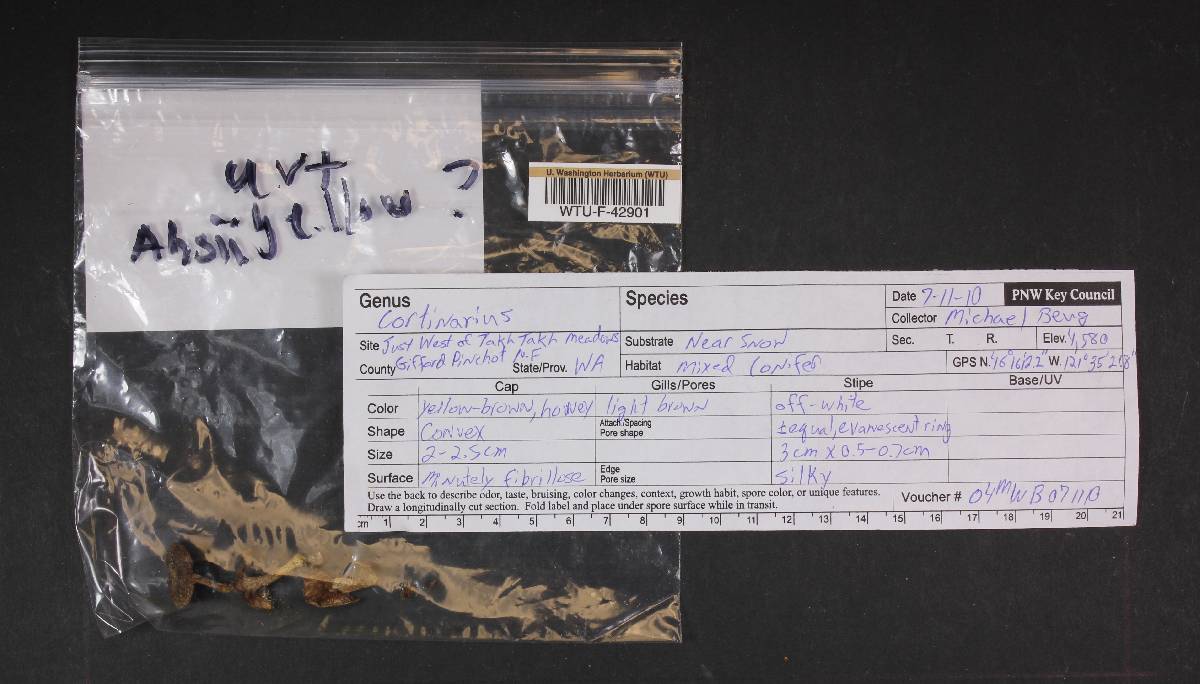 u.v+
Ahsiiyellow ?
U. Washington Herbarium (WTU)
WTU-F-42901
Genus Cortinarius
Species
Date 7-11-10 PNW Key Council
Collector Michael Beug
Site Just West of Takh Takh Meadows
Substrate Near Snow
Sec. T. R. Elev. 4,580
County Gifford Pinchot N.F State/Prov. WA
Habitat Mixed Conifer
GPS N. W.
Cap Gills/Pores Stipe Base/UV
Color yellow-brown, honey light brown off-white
Shape Convex Attach/Spacing ±equal, evanescent ring
Pore shape
Size 2-2.5cm 3cm x 0.5-0.7cm
Surface Minutely fibrillose Edge Silky
Pore size
Use the back to describe odor, taste, bruising, color changes, context, growth habit, spore color, or unique features.
Draw a longitudinally cut section. Fold label and place under spore surface while in transit.
Voucher # 04MWB071110
cm 1 2 3 4 5 6 7 8 9 10 11 12 13 14 15 16 17 18 19 20 21